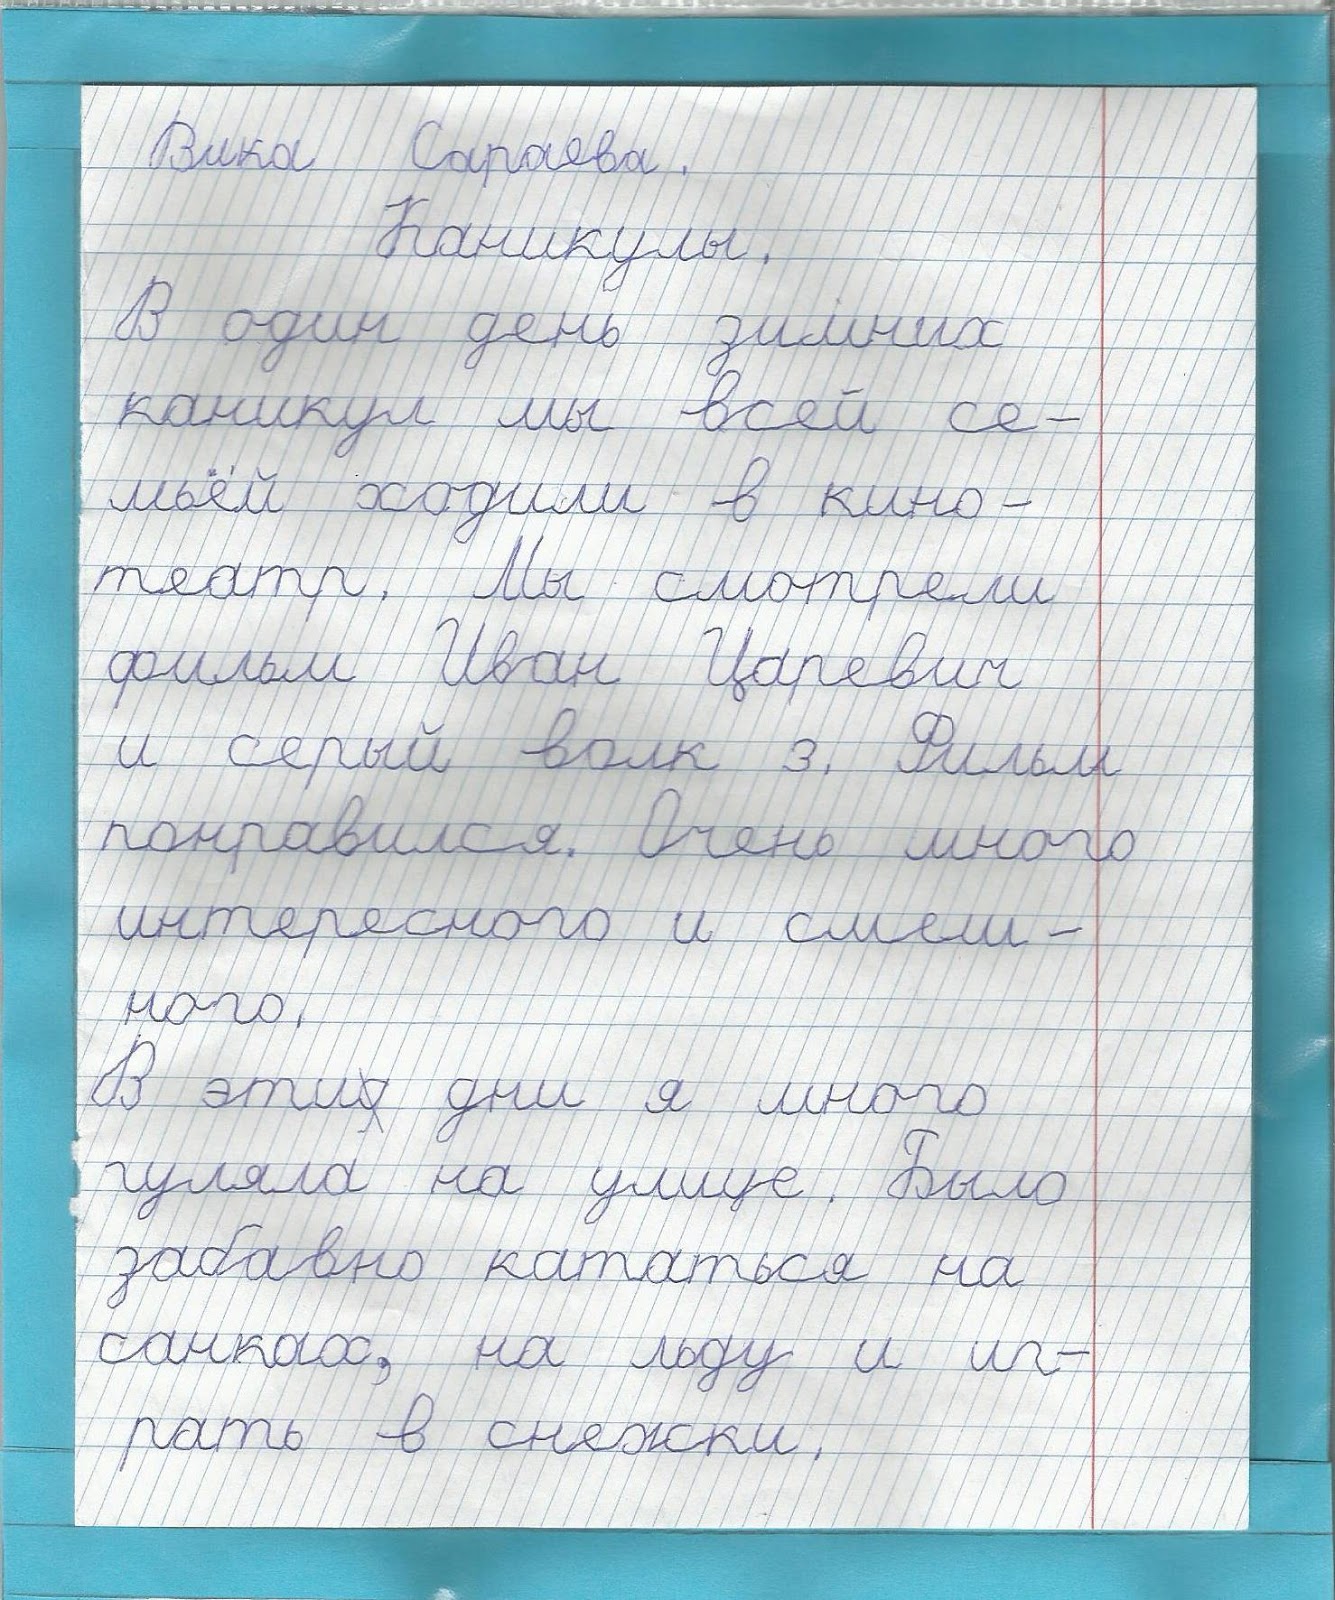 Вика Сараева.
Каникулы.
В один день зимних
каникул мы всей се-
мьёй ходили в кино-
театр. Мы смотрели
фильм Иван Царевич
и серый волк 3. Фильм
понравился. Очень много
интересного и смеш-
ного.
В эти дни я много
гуляла на улице. Было
забавно кататься на
санках, на льду и иг-
рать в снежки.